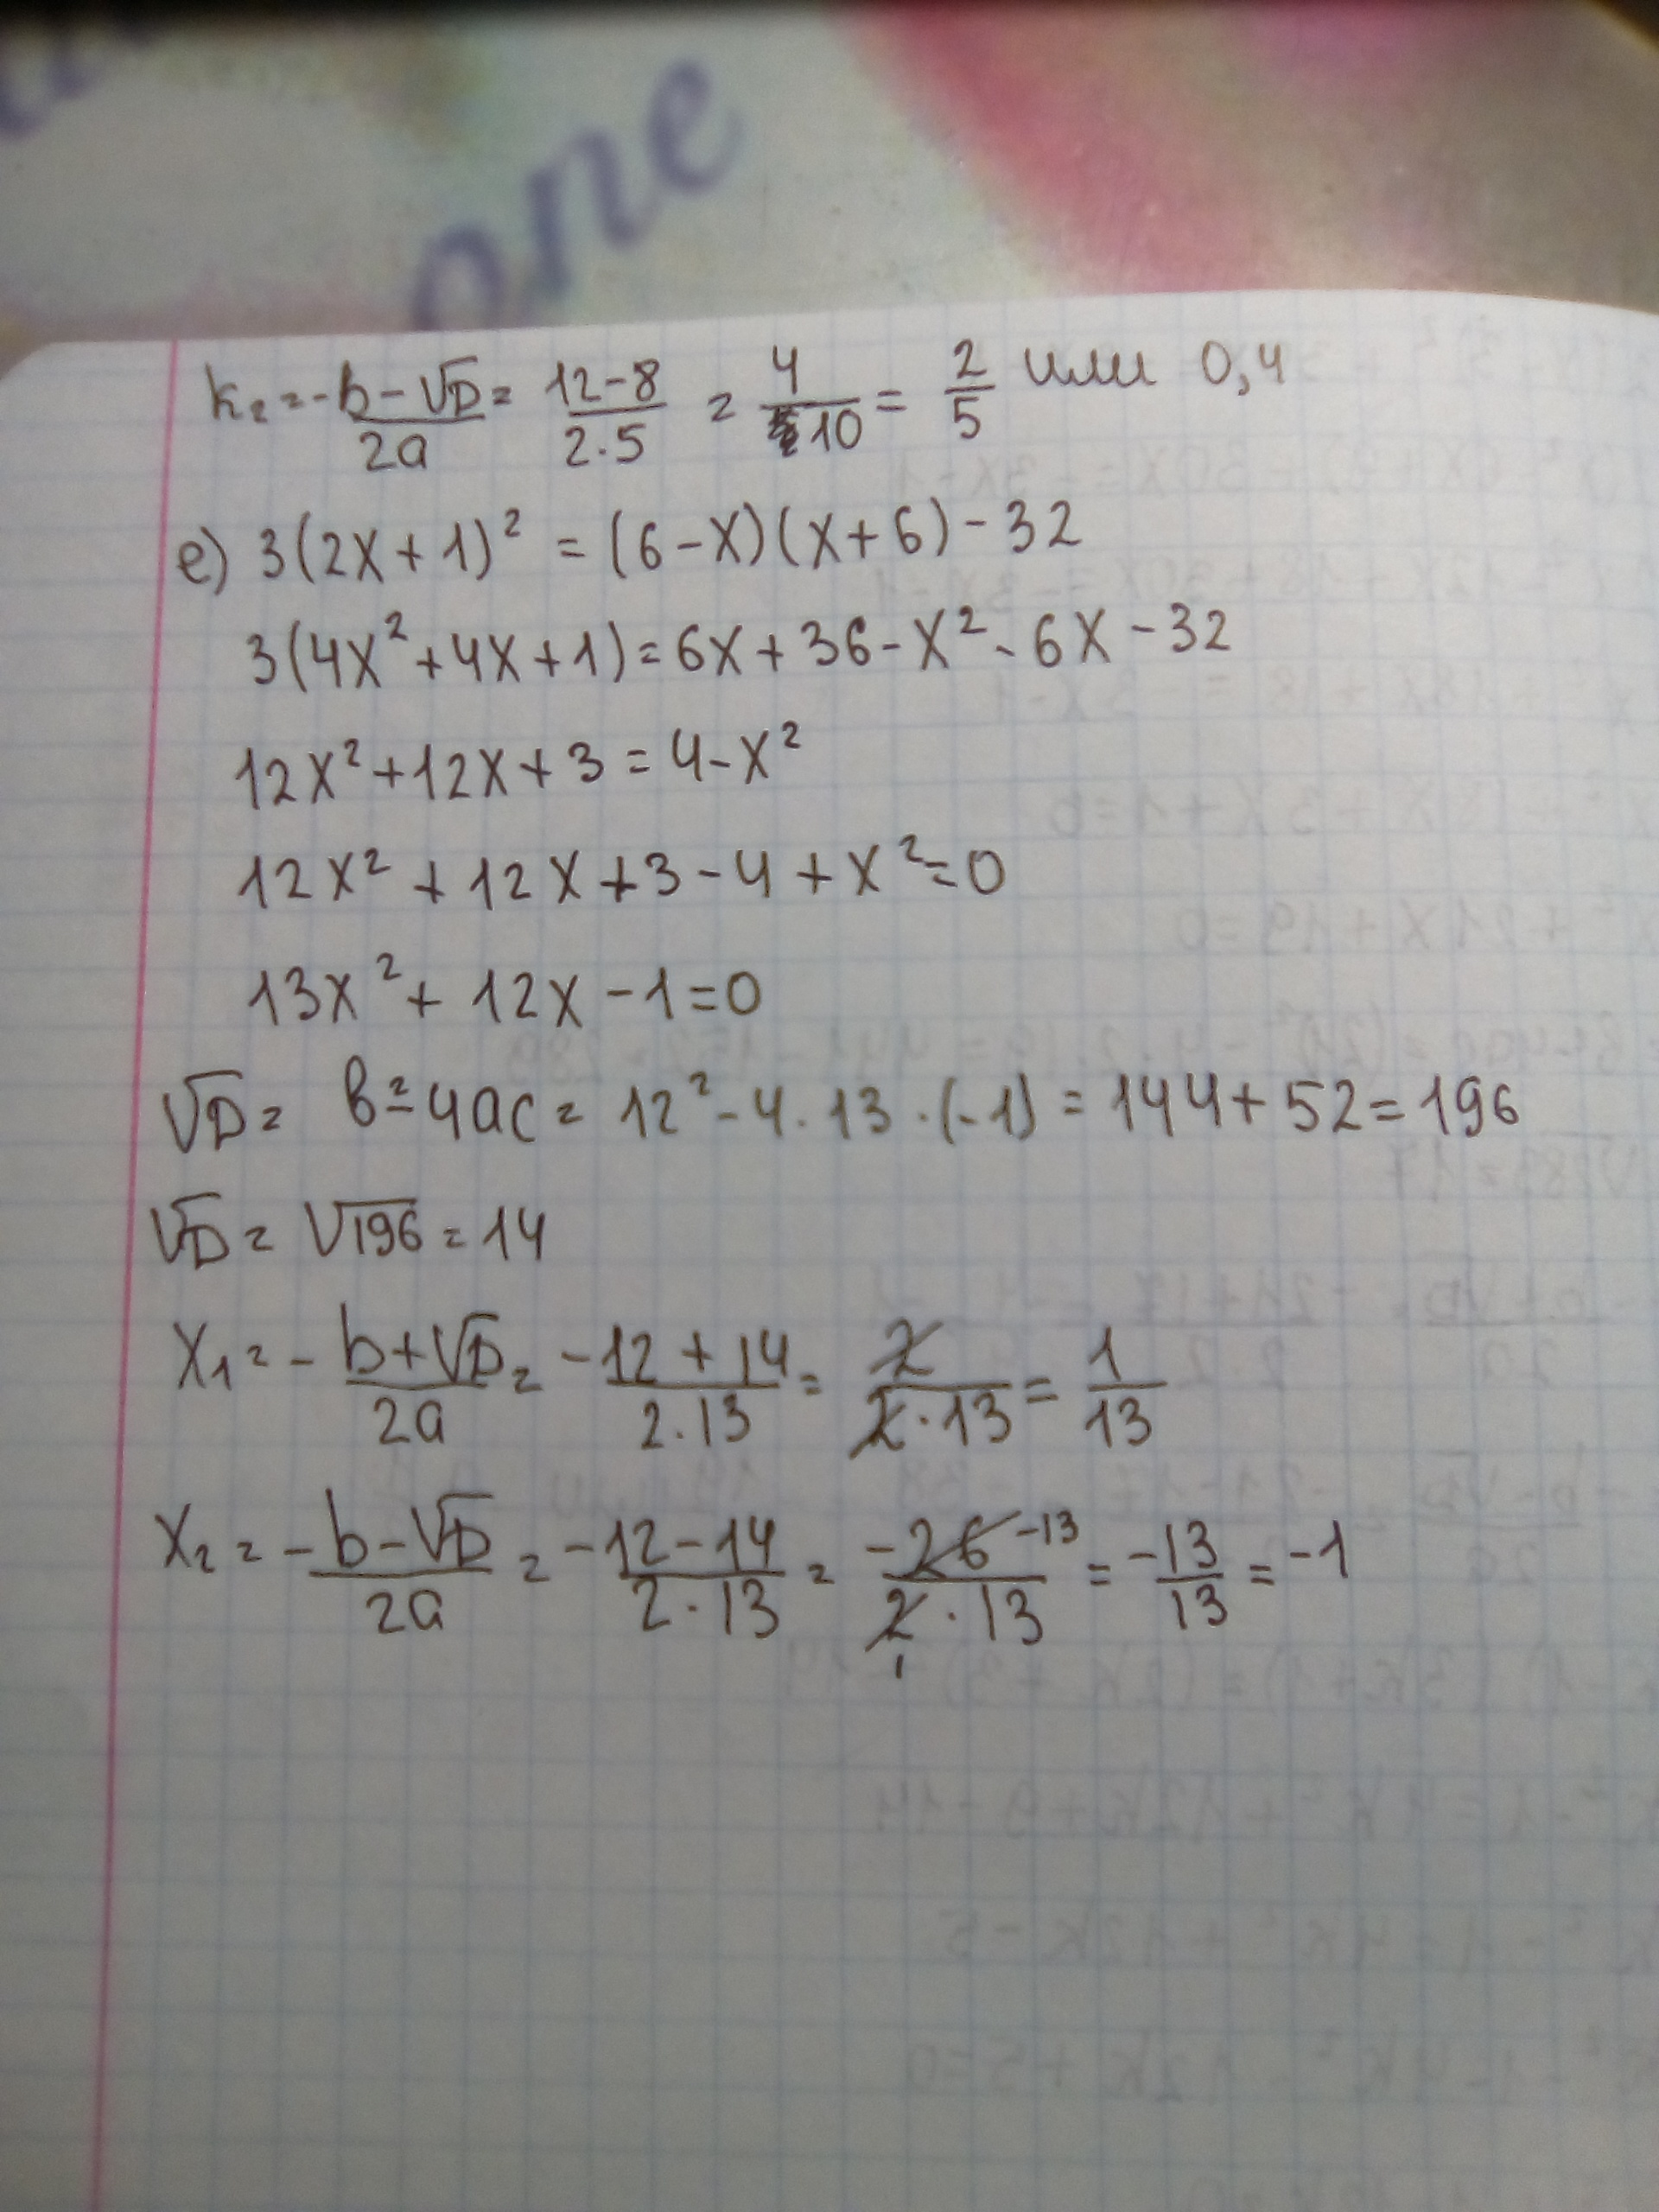 one
k₂ = -b-√D/2a = 12-8/2·5 = 4/10 = 2/5 или 0,4
е) 3(2x+1)² = (6-x)(x+6)-32
3(4x²+4x+1)=6x+36-x²-6x-32
12x²+12x+3=4-x²
12x²+12x+3-4+x²=0
13x²+12x-1=0
√D= b²-4ac= 12²-4·13·(-1)=144+52=196
√D= √196=14
x₁= -b+√D/2a = -12+14/2·13 = 2/2·13 = 1/13
x₂= -b-√D/2a = -12-14/2·13 = -26 -13/2 1·13 = -13/13 = -1